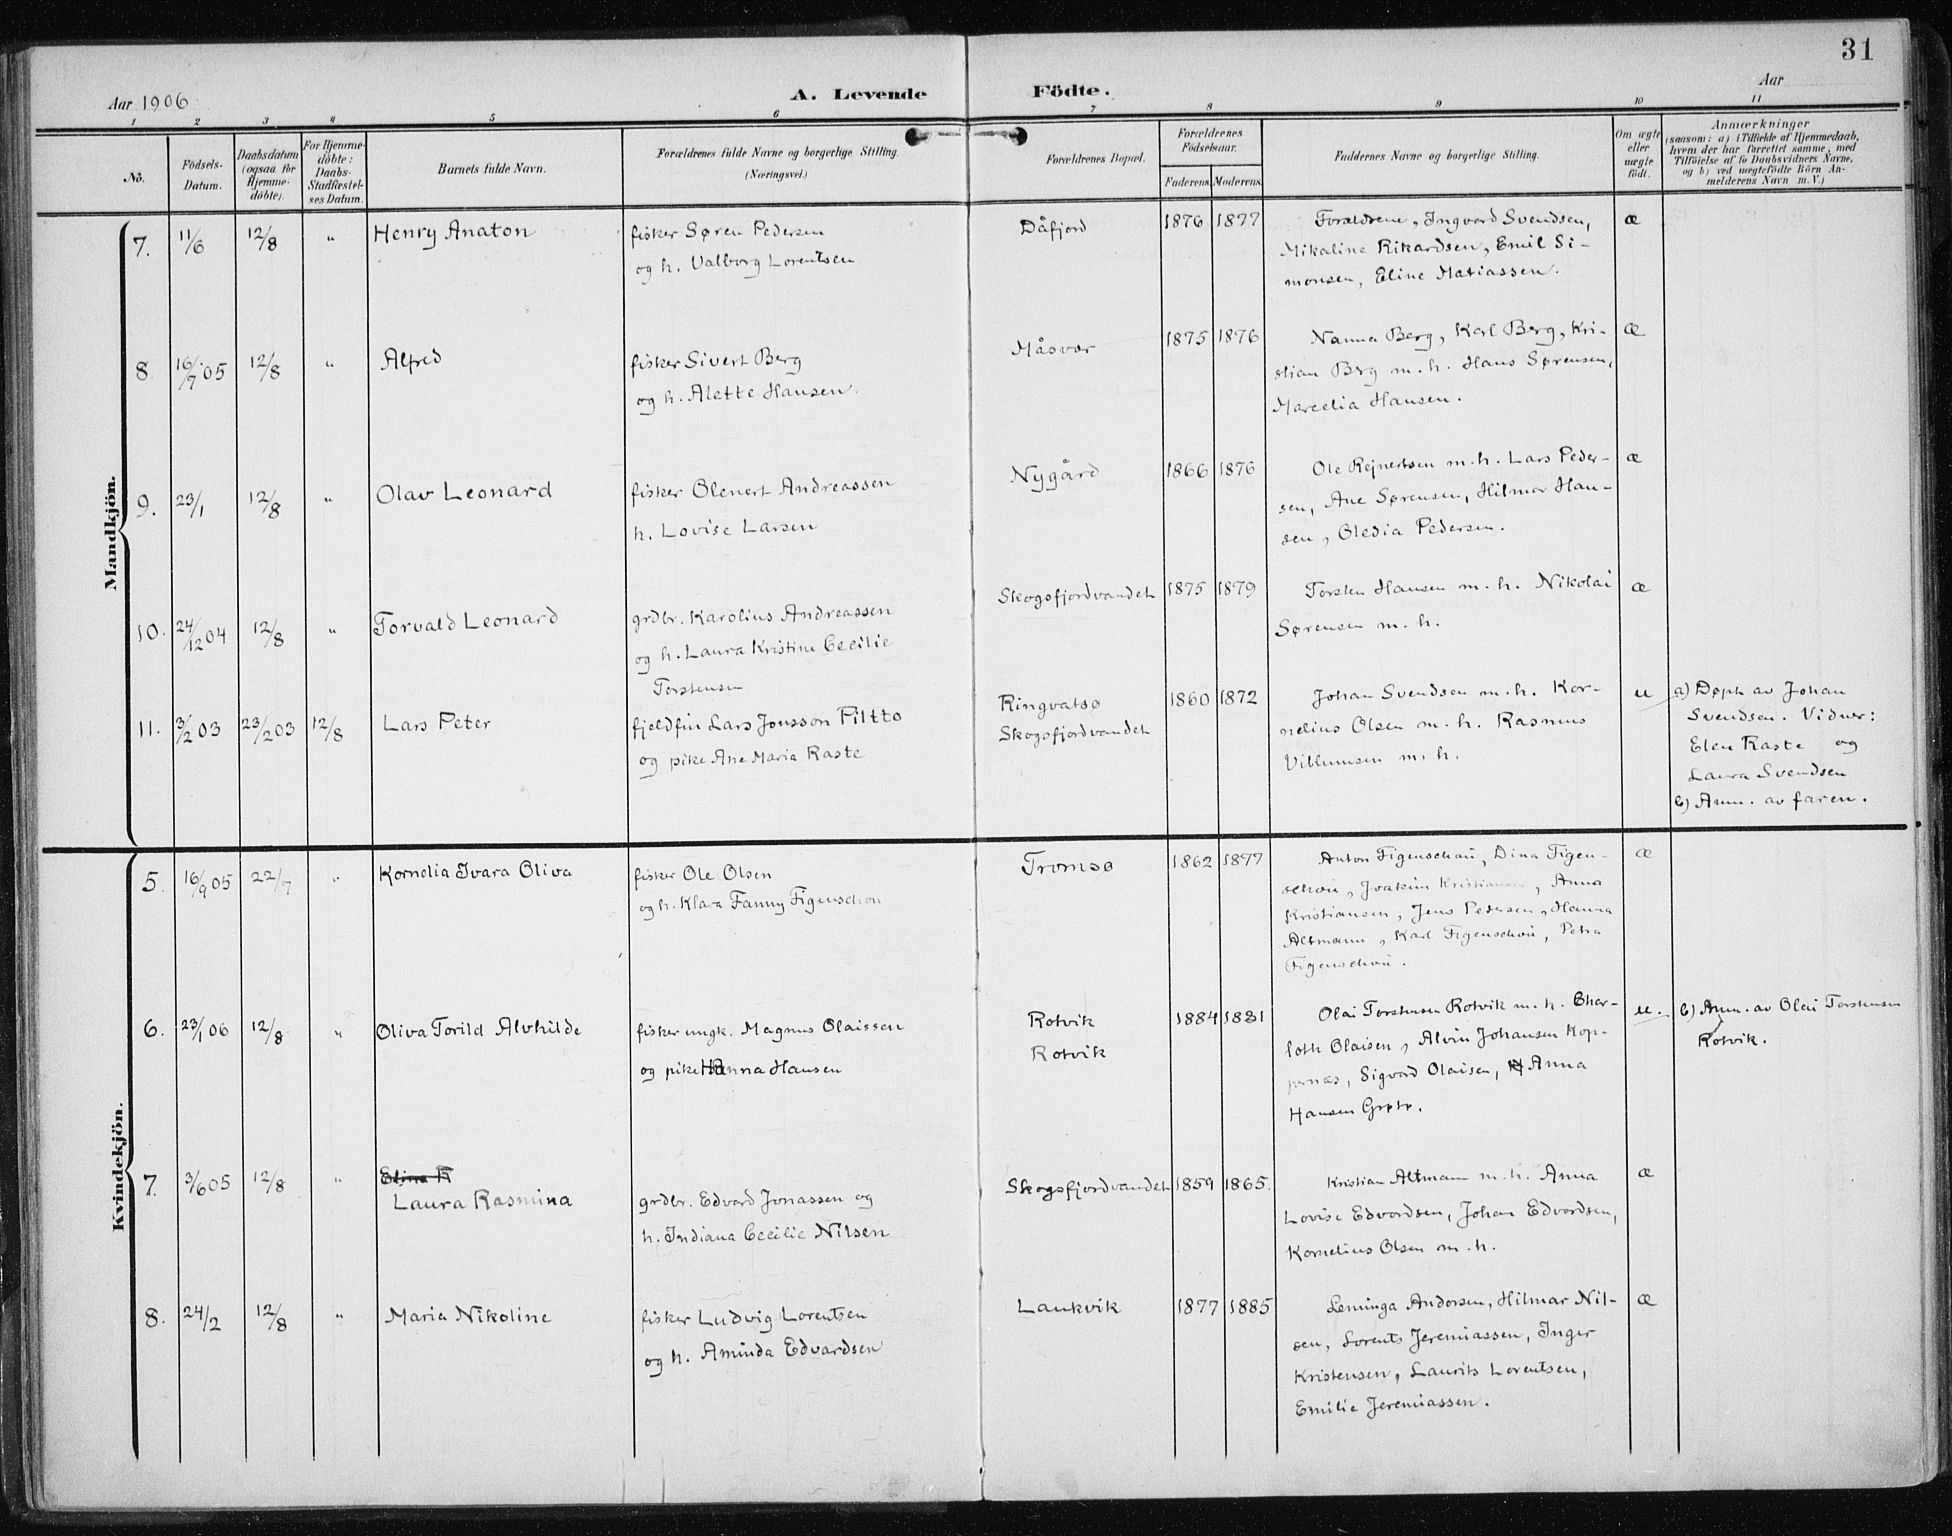 31
Aar 1906
A. Levende Födte.
Aar
1 2 3 4 5 6 7 8 9 10 11
No.
Födsels-
Datum.
Daabsdatum
(ogsaa for
Hjemme-
døbte).
For Hjemme-
døbte:
Daabs-
Stadfæstel-
ses Datum.
Barnets fulde Navn.
Forældrenes fulde Navne og borgerlige Stilling.
(Næringsvei.)
Forældrenes Bopæl.
Forældrenes
Födselsaar.
Faderens. Moderens.
Faddernes Navne og borgerlige Stilling.
Om ægte
eller
uægte
født.
Anmærkninger
(saasom: a) i Tilfælde af Hjemmedaab,
hvem der har forrettet samme, med
Tilföielse af to Daabsvidners Navne,
og b) ved uægtefödte Börn An-
melderens Navn m. V.)
Mandkjön.
7. 11/6 12/8 " Henry Anaton
fisker Søren Pedersen
og h. Valborg Lorentsen
Dåfjord 1876 1877
Forældrene, Ingvard Svendsen,
Mikaline Rikardsen, Emil Si-
monsen, Eline Matiassen.
æ
8. 16/7 05 12/8 " Alfred
fisker Sivert Berg
og h. Alette Hansen.
Måsvær 1875 1876
Nanna Berg, Karl Berg, Kri-
stian Berg m. h. Hans Sørensen,
Marcelia Hansen.
æ
9. 23/1 12/8 " Olav Leonard
fisker Olenert Andreassen
h. Lovise Larsen
Nygård 1866 1876
Ole Rejnertsen m. h. Lars Peder-
sen, Ane Sørensen, Hilmar Han-
sen, Oledia Pedersen.
æ
10. 24/12 04 12/8 " Torvald Leonard
grdbr. Karolius Andreassen
og h. Laura Kristine Cecilie
Torstensen
Skogsfjordvandet 1875 1879
Torsten Hansen m. h. Nikolai
Sørensen m. h.
æ
11. 3/2 03 23/2 03 12/8 Lars Peter
fjeldfin Lars Jonsson Piltto
og pike Ane Maria Raste
Ringvatsø
Skogsfjordvandet
1860 1872
Johan Svendsen m. h. Kor-
nelius Olsen m. h. Rasmus
Villumsen m. h.
u
a) Døpt av Johan
Svendsen. Vidner:
Elen Raste og
Laura Svendsen
b) Anm. av faren.
Kvindekjön.
5. 16/9 05 22/7 " Kornelia Ivara Oliva
fisker Ole Olsen
og h. Klara Fanny Figenschou
Tromsø 1862 1877
Anton Figenschou, Dina Figen-
schou, Joakim Kristiansen, Anna
Kristiansen, Jens Pedersen, Hanna
Altmann, Karl Figenschou, Petra
Figenschou.
æ
6. 23/1 06 12/8 " Oliva Torild Alvhilde
fisker ungk. Magnus Olaissen
og pike Hanna Hansen
Rotvik
Rotvik
1884 1881
Olai Torstensen Rotvik m. h. Char-
loth Olaisen, Alvin Johansen Kop-
pernæs, Sigvard Olaisen, Anna
Hansen Grøtø.
u.
b) Anm. av Olai Torstensen
Rotvik.
7. 3/6 05 12/8 " Elina R
Laura Rasmina
grdbr. Edvard Jonassen og
h. Indiana Cecilie Nilsen
Skogsfjordvandet 1859 1865.
Kristian Altmann m. h. Anna
Lovise Edvardsen, Johan Edvardsen,
Kornelius Olsen m. h.
æ
8. 24/2 12/8 " Maria Nikoline
fisker Ludvig Lorentsen
og h. Aminda Edvardsen
Laukvik 1877 1885
Leminga Andersen, Hilmar Nil-
sen, Lorents Jeremiassen, Inger
Kristensen, Laurits Lorentsen,
Emilie Jeremiassen.
æ